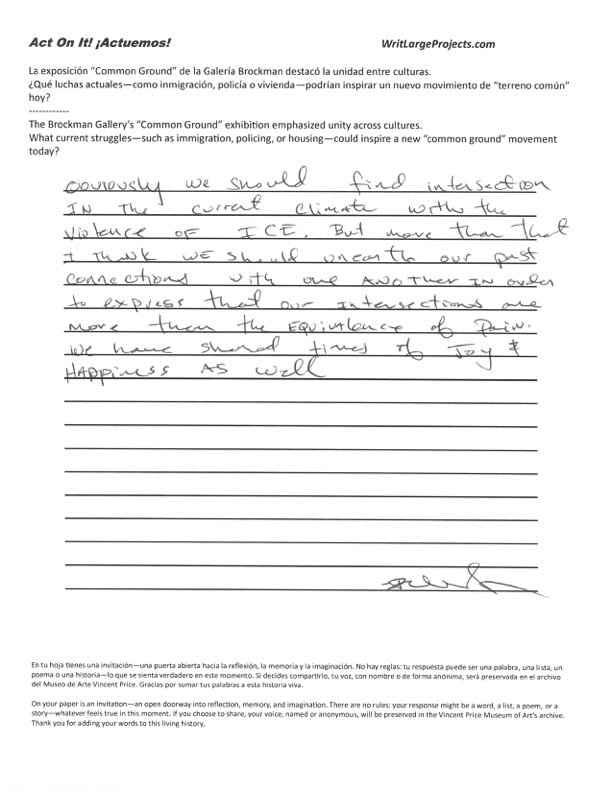 Act On It! ¡Actuemos!
WritLargeProjects.com
La exposición “Common Ground” de la Galería Brockman destacó la unidad entre culturas.
¿Qué luchas actuales—como inmigración, policía o vivienda—podrían inspirar un nuevo movimiento de “terreno común”
hoy?
------------
The Brockman Gallery's “Common Ground” exhibition emphasized unity across cultures.
What current struggles—such as immigration, policing, or housing—could inspire a new “common ground” movement
today?
Obviously we should find intersection
IN The current climate with the
violence OF ICE. But more than that
I think WE should unearth our past
connections with one ANOTHER IN order
to express that our Intersections are
more then the EQUIVALENCE of Pain.
We have shared times of Joy &
HAPPINESS AS well
En tu hoja tienes una invitación—una puerta abierta hacia la reflexión, la memoria y la imaginación. No hay reglas: tu respuesta puede ser una palabra, una lista, un
poema o una historia—lo que se sienta verdadero en este momento. Si decides compartirlo, tu voz, con nombre o de forma anónima, será preservada en el archivo
del Museo de Arte Vincent Price. Gracias por sumar tus palabras a esta historia viva.
On your paper is an invitation—an open doorway into reflection, memory, and imagination. There are no rules: your response might be a word, a list, a poem, or a
story—whatever feels true in this moment. If you choose to share, your voice, named or anonymous, will be preserved in the Vincent Price Museum of Art's archive.
Thank you for adding your words to this living history.